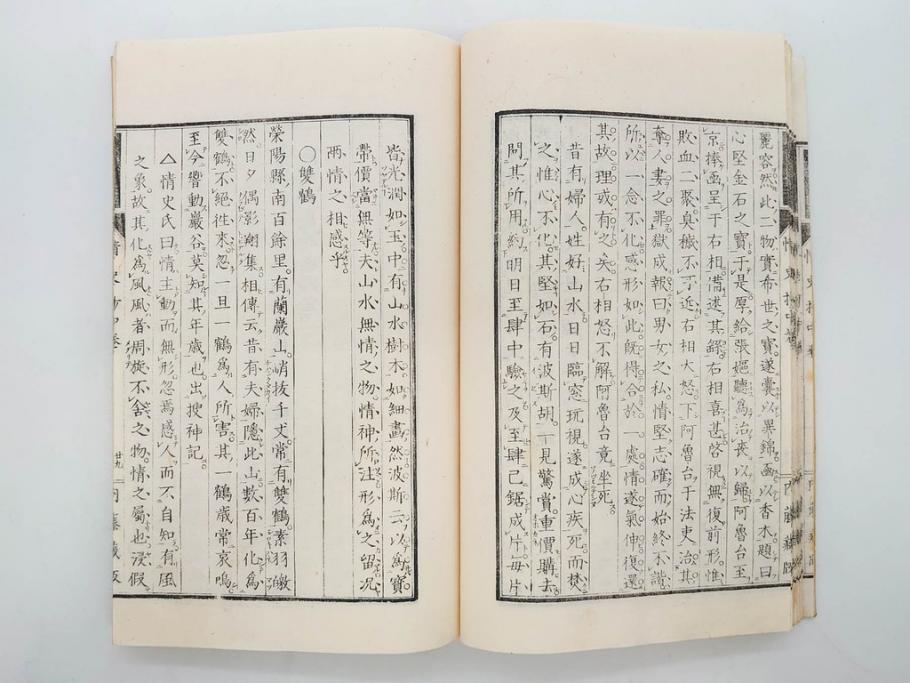 麗容然此二物實希世之寶遂囊以異錦函以香木題曰
心堅金石之寶于是厚給張嫗聽爲治喪以歸阿魯台至
京捧函呈于右相備述其繇右相喜甚啓視無復前形惟
敗血二聚臭穢不可近右相大怒下阿魯台于法吏治其
奪人妻之罪獄成報曰男女之私情堅志確而始終不諧
所以一念不化感形如此旣得合於一處情遂氣伸復還
其故理或有之矣右相怒不解阿魯台竟坐死
昔有婦人姓好山水日日臨窓玩視遂成心疾死而焚
之惟心不化其堅如石有波斯胡一見驚賞重價購去
問其所用約明日至肆中驗之及至肆已鋸成片毎片
皆光潤如玉中有山水樹木如細畫然波斯云以爲寶
帶價當無等夫山水無情之物情神所注形爲之留况
兩情之相感乎
○雙鶴
滎陽縣南百餘里有蘭巖山峭拔千丈常有雙鶴素羽皦
然日夕偶影翔集相傳云昔有夫婦隱此山數百年化爲
雙鶴不絕往來忽一旦一鶴爲人所害其一鶴歲常哀鳴
至今響動巖谷莫知其年歲也出搜神記
△情史氏曰情主動而無形忽焉感人而不自知有風
之象故其化爲風風者周旋不舍之物情之屬也浸假
情史抄中卷
廿九